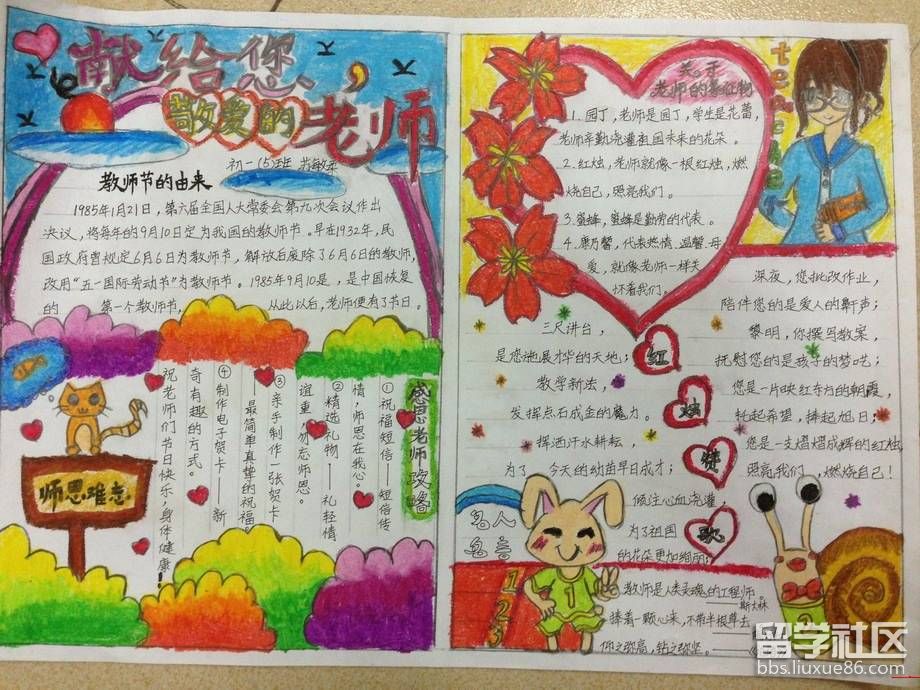 献给您、
敬爱的老师
初一(5)班
教师节的由来
1985年1月21日，第六届全国人大常委会第九次会议作出
决议，将每年的9月10日定为我国的教师节。早在1932年，民
国政府曾规定6月6日为教师节，解放后废除了6月6日的教师节，
改用“五一国际劳动节”为教师节。1985年9月10是，是中国恢复
的 第一个教师节， 从此以后，老师便有了节日。
感恩老师攻略
①祝福短信——短信传
情，师恩在我心。
②精选礼物——礼轻情
谊重，勿忘师恩。
③亲手制作一张贺卡
——最简单真挚的祝福
④制作电子贺卡——新
奇有趣的方式。
祝老师们节日快乐，身体健康！
师恩难忘
关于
老师的象征物
1.园丁，老师是园丁，学生是花蕾，
老师辛勤浇灌祖国未来的花朵。
2.红烛，老师就像一根红烛，燃
烧自己，照亮我们。
3.蜜蜂，蜜蜂是勤劳的代表。
4.康乃馨，代表热情、温馨、母
爱，就像老师一样关
怀着我们。
红烛赞歌
三尺讲台，
是您施展才华的天地；
教学新法，
发挥点石成金的魔力。
挥洒汗水耕耘，
为了 今天的幼苗早日成才；
倾注心血浇灌，
为了祖国
的花朵更加绚丽；
深夜，您批改作业，
陪伴您的是爱人的鼾声；
黎明，你撰写教案，
抚慰您的是孩子的梦呓；
您是一片映红东方的朝霞
托起希望，捧起旭日；
您是一支熠熠成辉的红烛，
照亮我们，燃烧自己！
名人
名言
1
2
3
1
教师是人类灵魂的工程师。
——斯大林
捧着一颗心来，不带半根草去
仰之弥高，钻之弥坚。
留学社区
bbs.liuxue86.com